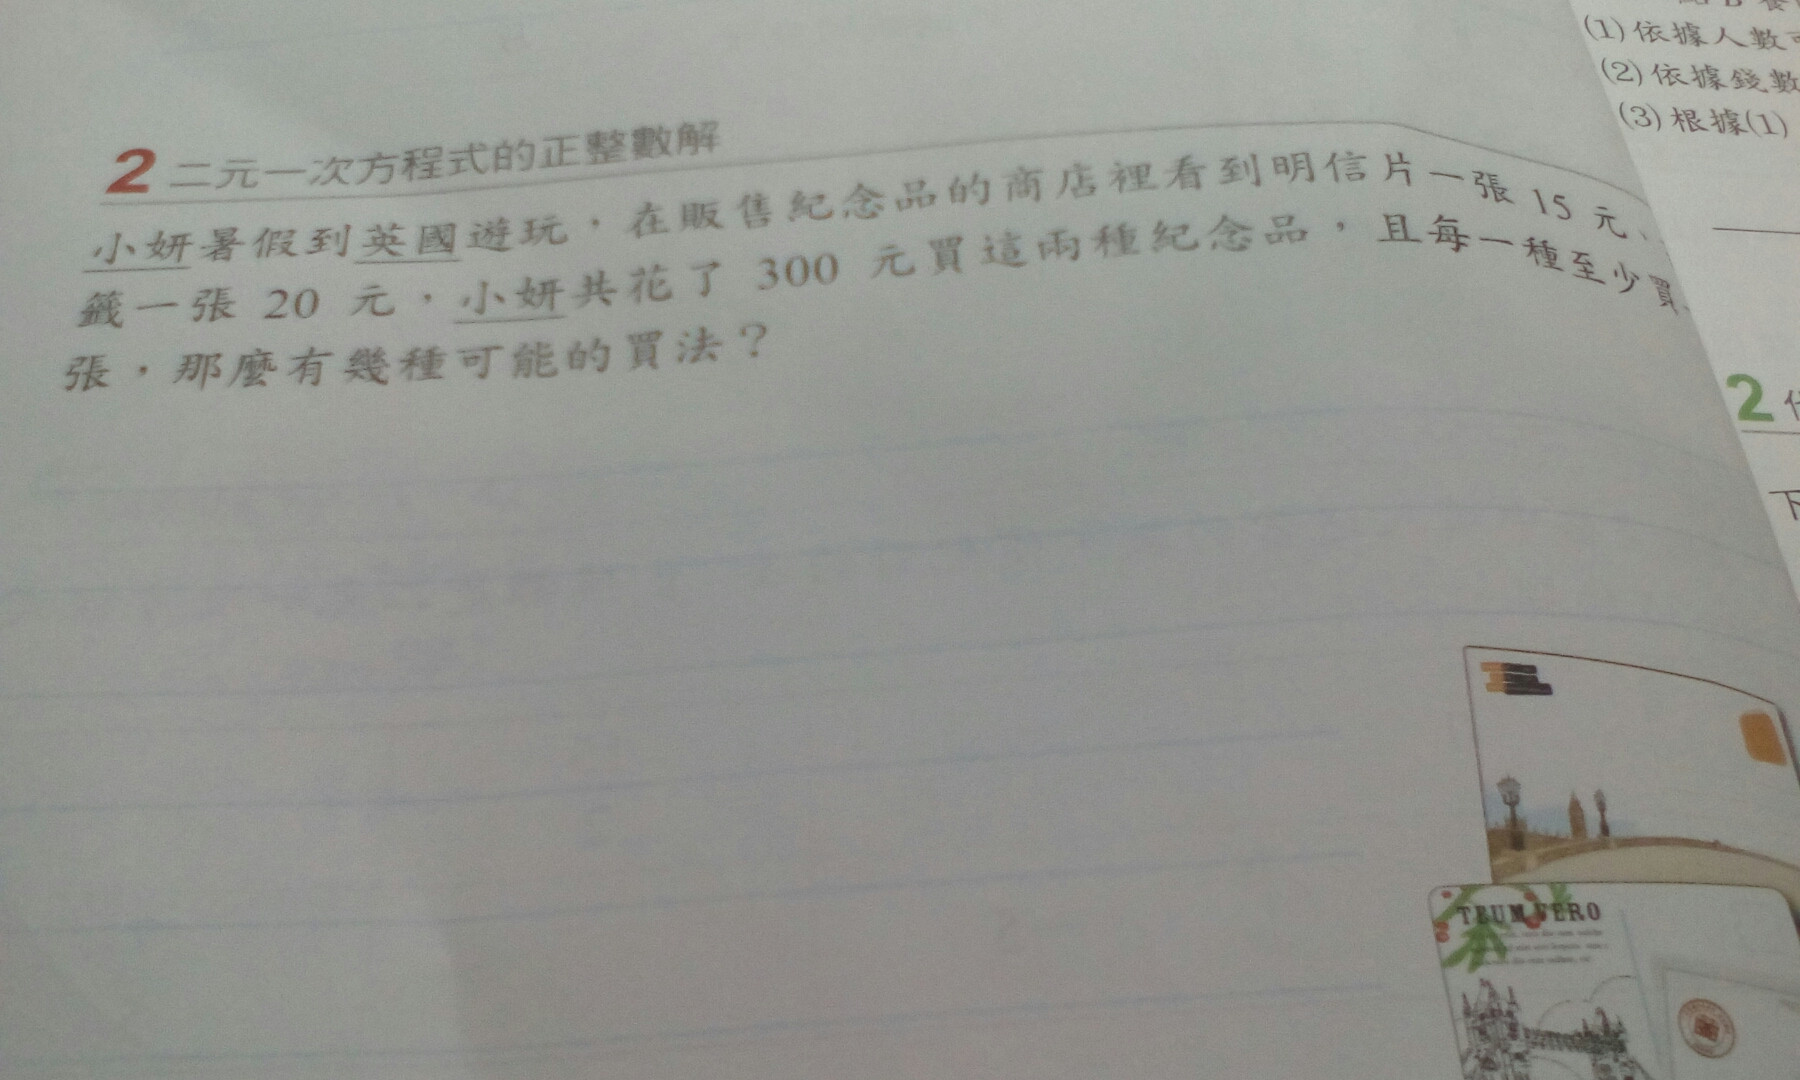 2 二元一次方程式的正整數解
小妍暑假到英國遊玩，在販售紀念品的商店裡看到明信片一張 15 元、
籤一張 20 元，小妍共花了 300 元買這兩種紀念品，且每一種至少買
張，那麼有幾種可能的買法？
(1) 依據人數
(2) 依據錢數
(3) 根據(1)
2
下
TEUM VERO